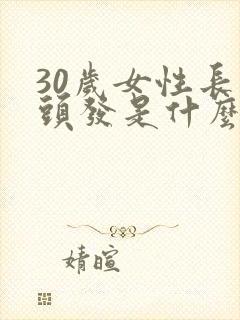 30歲女性長
頭發是什麼
婧暄